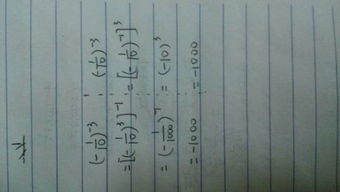 (-1/10)^-3 (1/10)^-3
=[(-1/10)^3]^-1 =[(-1/10)^-1]^3
=(-1/1000)^-1 =(-10)^3
=-1000 =-1000